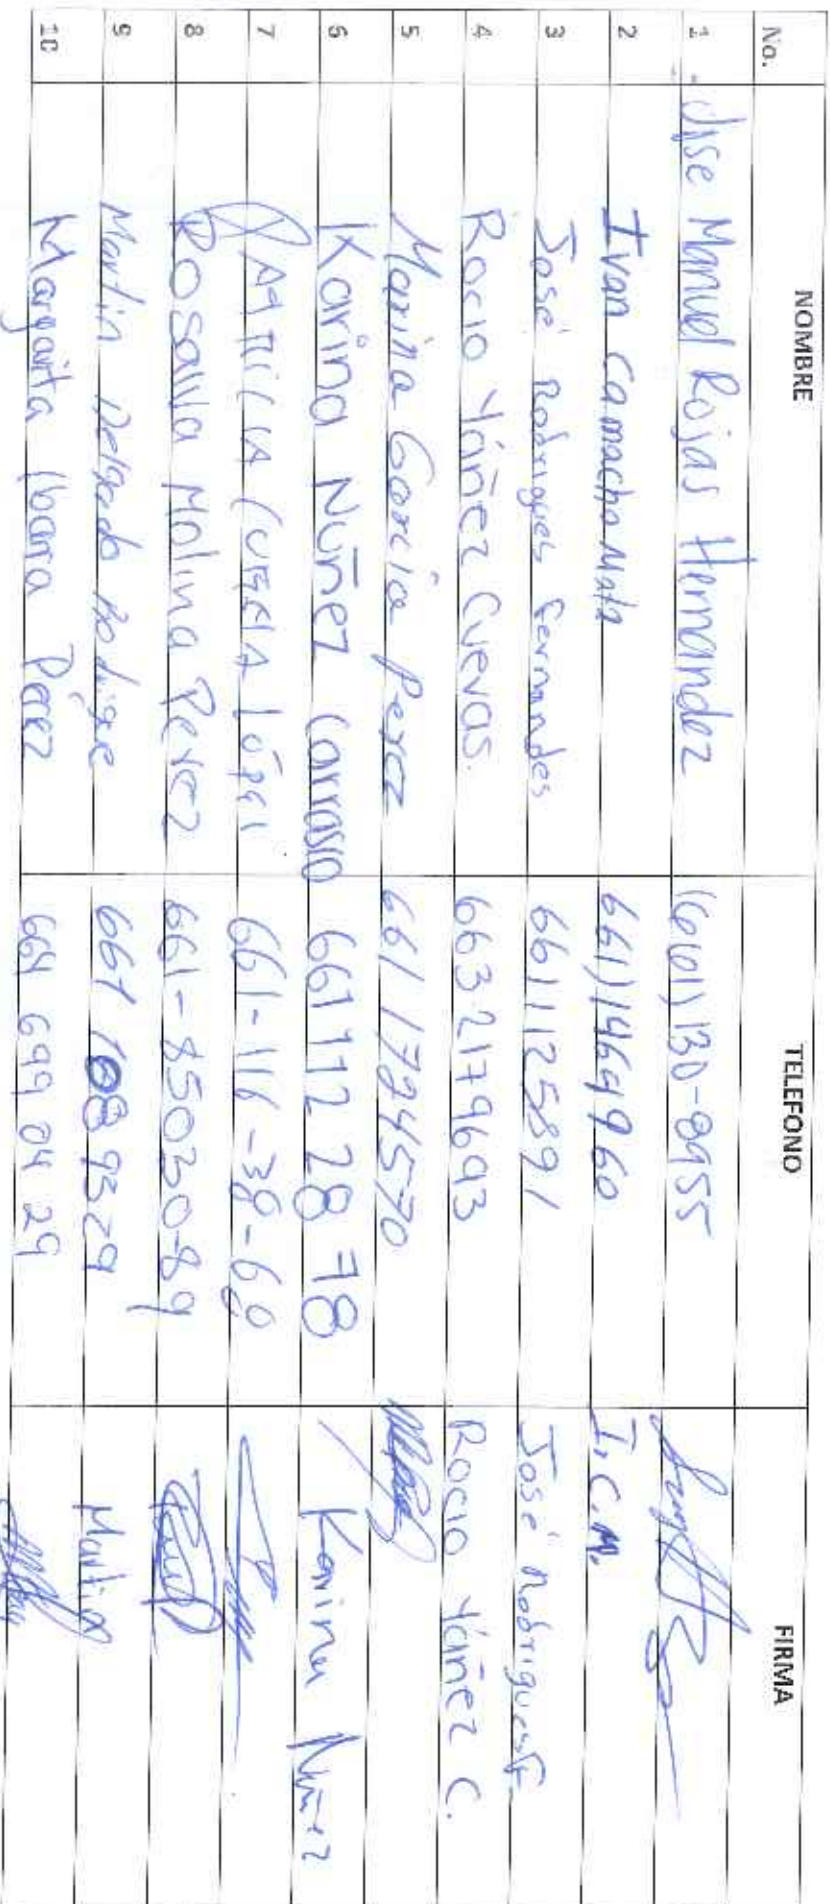 No. NOMBRE TELEFONO FIRMA
1 Jose Manuel Rojas Hernandez (661) 130-8955
2 Ivan Camacho Mata 661) 1464960 I.C.M.
3 José Rodrigues Fernandes 6611125891 José Rodrigues F.
4 Rocio Yáñez Cuevas. 663 2179693 Rocio Yáñez C.
5 Marina Garcia Perez 661 1724570
6 Karina Nuñez Carrasco 661 112 28 78 Karina Nuñez
7 López 661-116-38-68
8 Rosalva Molina Perez 661-85030-89
9 Martin Delgado 661 1089329 Martin
10 Margarita Ibarra Perez 664 699 04 29